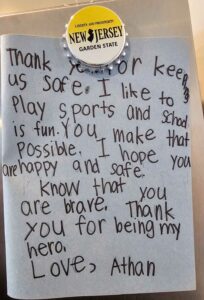 LIBERTY AND PROSPERITY
NEW JERSEY
GARDEN STATE
Thank for keep
us safe. I like to
Play sports and School
is fun. You make that
Possible. I hope you
are happy and safe.
I know that you
are brave. Thank
you for being my
hero.
Love, Athan